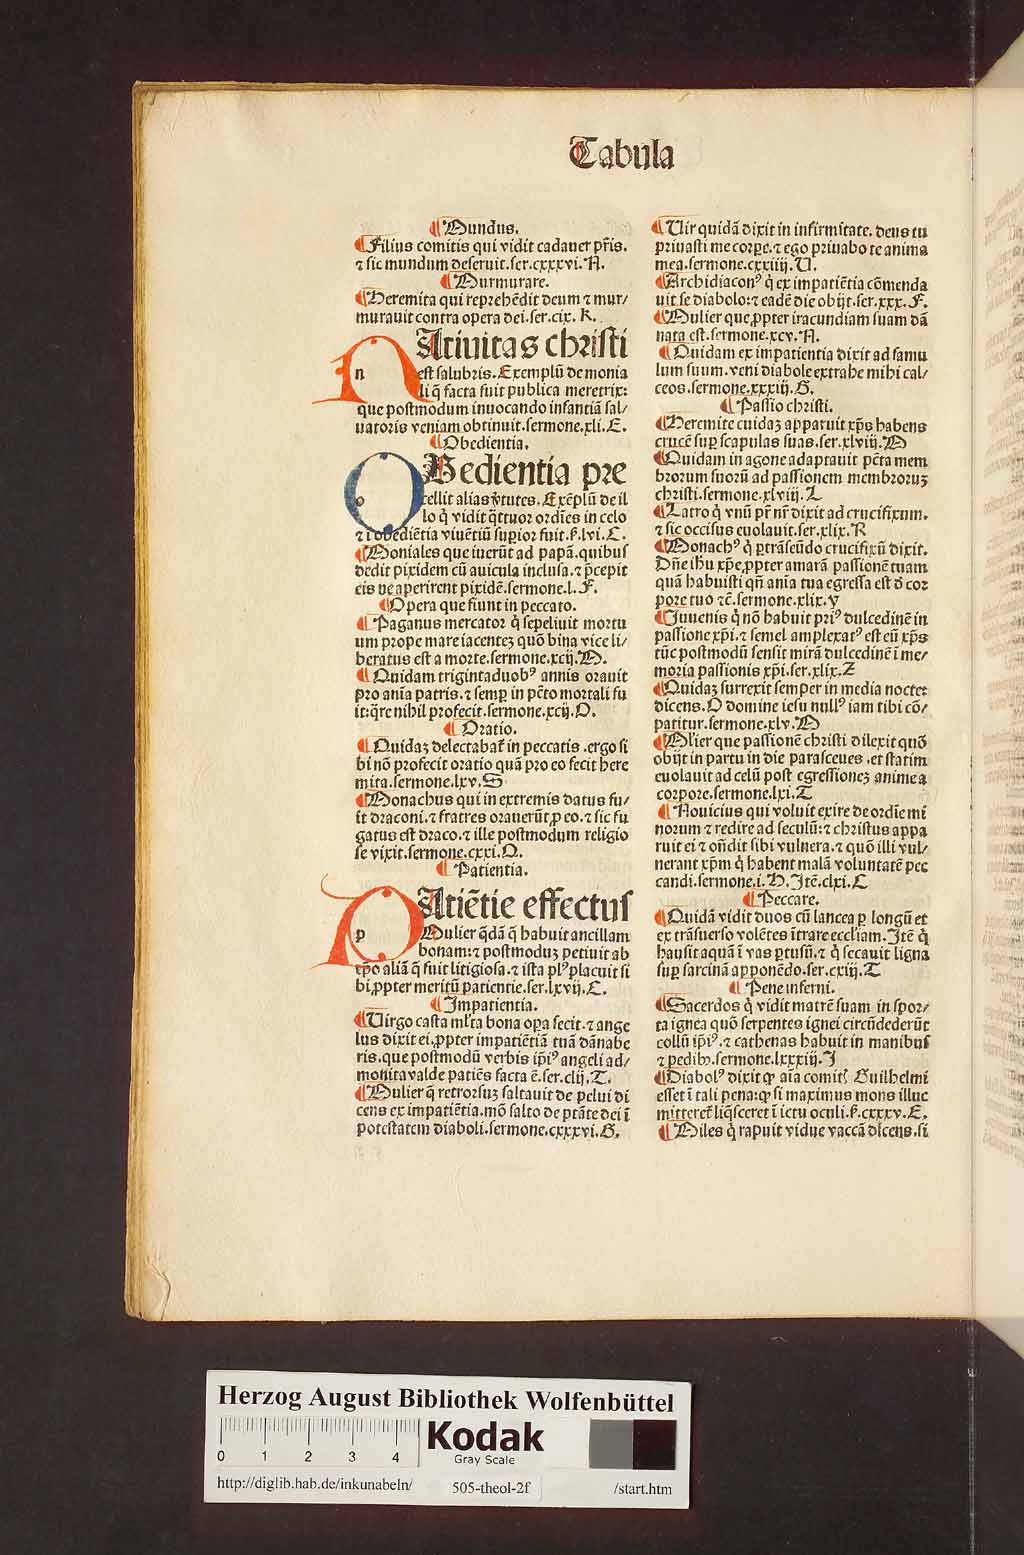 Tabula
¶ Mundus.
¶ Filius comitis qui vidit cadauer pr̄is.
⁊ sic mundum deseruit.ser.cxxxvi.N.
¶ Murmurare.
¶ Heremita qui reprehēdit deum ⁊ mur/
murauit contra opera dei.ser.cix.K.
NAtiuitas christi
n est salubris.Exemplū de monia
li q̄ facta fuit publica meretrix:
que postmodum inuocando infantiā sal/
uatoris veniam obtinuit.sermone.xli.E.
¶ Obedientia.
OBedientia pre
o cellit alias v̓tutes. Exēplū de il
lo q̇ vidit q̈ttuor ordīes in celo
⁊ ī obediētia viuētiū suꝑior fuit.ẜ.lvi.C.
¶ Moniales que iuerūt ad papā.quibus
dedit pixidem cū auicula inclusa.⁊ p̄cepit
eis ne aperirent pixidē.sermone.l.F.
¶ Opera que fiunt in peccato.
¶ Paganus mercator q̇ sepeliuit mortu
um prope mare iacentez quō bina vice li/
beratus est a morte.sermone.xcij.M.
¶ Quidam trigintaduobꝰ annis orauit
pro aīa patris.⁊ semꝑ in pc̄to mortali fu
it:q̄re nihil profecit.sermone.xcij.O.
¶ Oratio.
¶ Quidaz delectabat̄ in peccatis .ergo si
bi nō profecit oratio quā pro eo fecit here
mita.sermone.lxv.S
¶ Monachus qui in extremis datus fu/
it draconi.⁊ fratres orauerūt ꝓ eo.⁊ sic fu
gatus est draco.⁊ ille postmodum religio
se vixit.sermone.cxxi.O.
¶ Patientia.
PAtiētie effectus
p Mulier q̄dā q̄ habuit ancillam
bonam:⁊ postmoduz petiuit ab
ep̄o aliā q̄ fuit litigiosa.⁊ ista plꝰ placuit si
bi ꝓpter meritū patientie.ser.lxvij.C.
¶ Impatientia.
¶ Virgo casta ml̓ta bona oꝑa fecit.⁊ ange
lus dixit ei.ꝓpter impatiētiā tuā dānabe
ris.que postmodū verbis ip̄iꝰ angeli ad/
monita valde patiēs facta ē.ser.clij.T.
¶ Mulier q̄ retrorsuz saltauit de pelui di
cens ex impatiētia.mō salto de ptāte dei ī
potestatem diaboli.sermone.cxxxvi.G.
¶ Uir quidā dixit in infirmitate. deus tu
priuasti me corpe.⁊ ego priuabo te anima
mea.sermone.cxxiiij.V.
¶ Archidiaconꝰ q̇ ex impatiētia cōmenda
uit se diabolo:⁊ eadē die obijt.ser.xxx.F.
¶ Mulier que ꝓpter iracundiam suam dā
nata est.sermone.xcv.N.
¶ Quidam ex impatientia dixit ad samu
lum suum.veni diabole extrahe mihi cal/
ceos.sermone.xxxiij.G.
¶ Passio christi.
¶ Heremite cuidaz apparuit xp̄s habens
crucē suꝑ scapulas suas.ser.xlviij.M
¶ Quidam in agone adaptauit pc̄ta mem
brorum suorū ad passionem membroruz
christi.sermone.xlviij.L
¶ Latro q̇ vnū pr̄ nr̄ dixit ad crucifixum.
⁊ sic occisus euolauit.ser.xlix.R
¶ Monachꝰ q̇ ꝑtrāseūdo crucifixū dixit.
Dn̄e ih̓u xp̄e.ꝓpter amarā passionē tuam
quā habuisti qn̄ aīa tua egressa est d̓ cor
pore tuo ⁊c̄.sermone.xlix.y
¶ Juuenis q̇ nō habuit priꝰ dulcedinē in
passione xp̄i.⁊ semel amplexatꝰ est eū xp̄s
tūc postmodū sensit mirā dulcedinē ī me/
moria passionis xp̄i.ser.xlix.Z
¶ Quidaz surrexit semper in media nocte:
dicens.O domine iesu nullꝰ iam tibi cō/
patitur.sermone.xlv.M
¶ Ml̓ier que passionē christi dilexit quō
obijt in partu in die parasceues .et statim
euolauit ad celū post egressionez anime a
corpore.sermone.lxi.T
¶ Nouicius qui voluit exire de ordīe mi
norum ⁊ redire ad seculū:⁊ christus appa
ruit ei ⁊ on̄dit sibi vulnera.⁊ quō illi vul/
nerant xp̄m q̇ habent malā voluntatē pec
candi.sermone.i.H.Itē.clxi.C
¶ Peccare.
¶ Quidā vidit duos cū lancea ꝑ longū et
ex trāsuerso volētes ītrare eccl̓iam.Itē q̇
hausit aquā ī vas ꝑtusū.⁊ q̇ secauit ligna
suꝑ sarcinā apponēdo.ser.cxiij.T
¶ Pene inferni.
¶ Sacerdos q̇ vidit matrē suam in spor/
ta ignea quō serpentes ignei circūdederūt
collū ip̄iꝰ.⁊ cathenas habuit in manibus
⁊ pedibꝫ.sermone.lxxxiij.I
¶ Diabolꝰ dixit ꝙ aīa comit̓ Guilhelmi
esset ī tali pena:ꝙ si maximus mons illuc
mitteret̄ liq̄sceret ī ictu oculi.ẜ.cxxxv.E.
¶ Miles q̇ rapuit vidue vaccā dicens.si
Herzog August Bibliothek Wolfenbüttel
0 1 2 3 4
Kodak
Gray Scale
http://diglib.hab.de/inkunabeln/ 505-theol-2f /start.htm